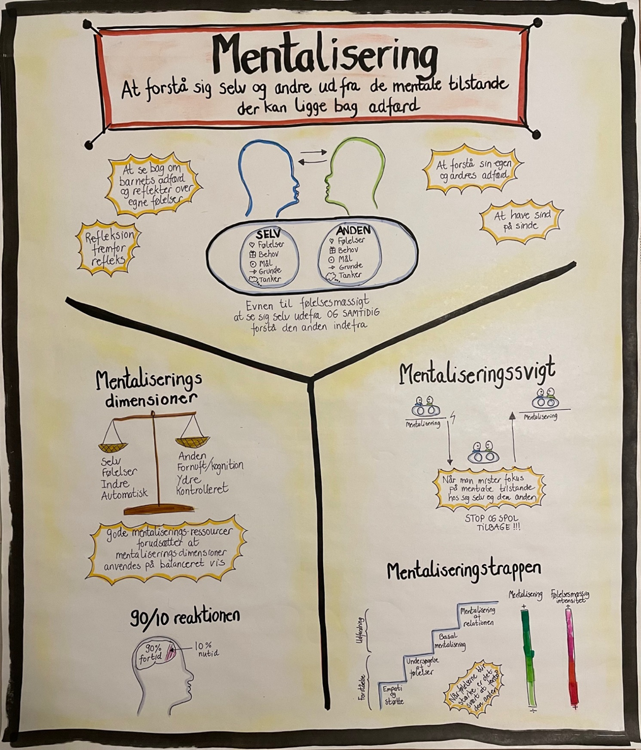 Mentalisering
At forstå sig selv og andre ud fra de mentale tilstande
der kan ligge bag adfærd
At se bag om
barnets adfærd
og reflekter over
egne følelser
Refleksion
fremfor
refleks
At forstå sin egen
og andres adfærd
At have sind
på sinde
SELV
Følelser
Behov
Mål
Grunde
Tanker
ANDEN
Følelser
Behov
Mål
Grunde
Tanker
Evnen til følelsesmæssigt
at se sig selv udefra OG SAMTIDIG
forstå den anden indefra
Mentaliserings
dimensioner
Selv
Følelser
Indre
Automatisk
Anden
Fornuft/kognition
Ydre
Kontrolleret
gode mentaliserings-ressourcer
forudsætter at
mentaliserings-dimensioner
anvendes på balanceret vis
90/10 reaktionen
90%
fortid
10%
nutid
Mentaliseringssvigt
Mentalisering
Mentalisering
Når man mister fokus
på mentale tilstande
hos sig selv og den anden
STOP OG SPOL
TILBAGE !!!
Mentaliseringstrappen
Udfordring
Forståelse
Mentalisering
af relationen
Basal
mentalisering
Undersøgelse
af følelser
Empati
og
støtte
Mentalisering
Følelsesmæssig
intensitet
+
+
Når følelserne bliver
stærke, er det
svært at